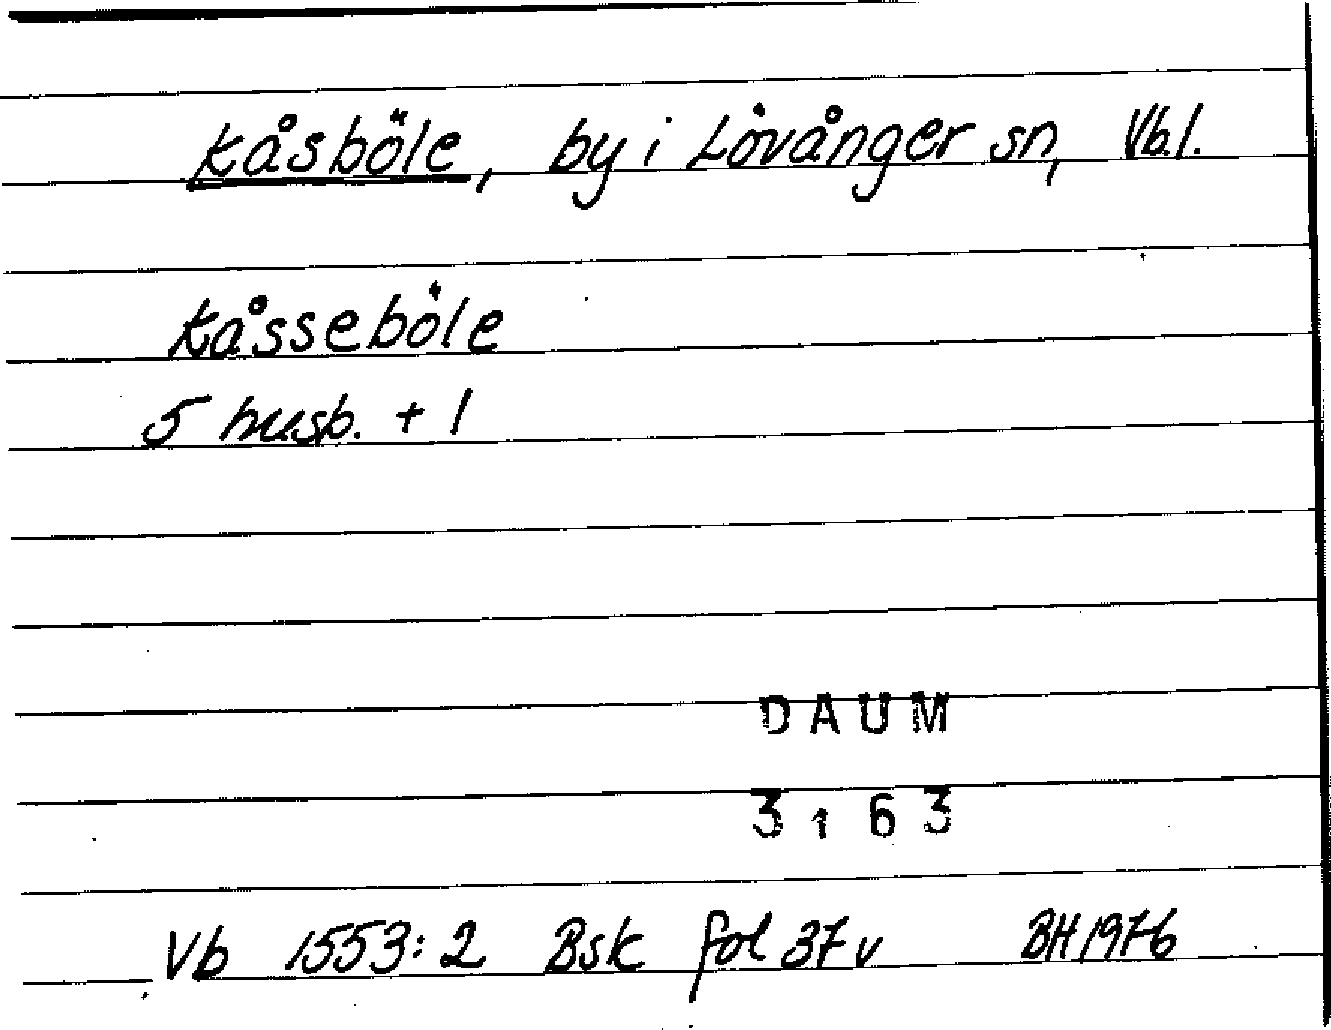 Kåsböle, by i Lövånger sn, Vb.l.
Kåsseböle
5 husb. + 1
DAUM
3163
Vb 1553:2 Bsk fol 37 v BH 1976